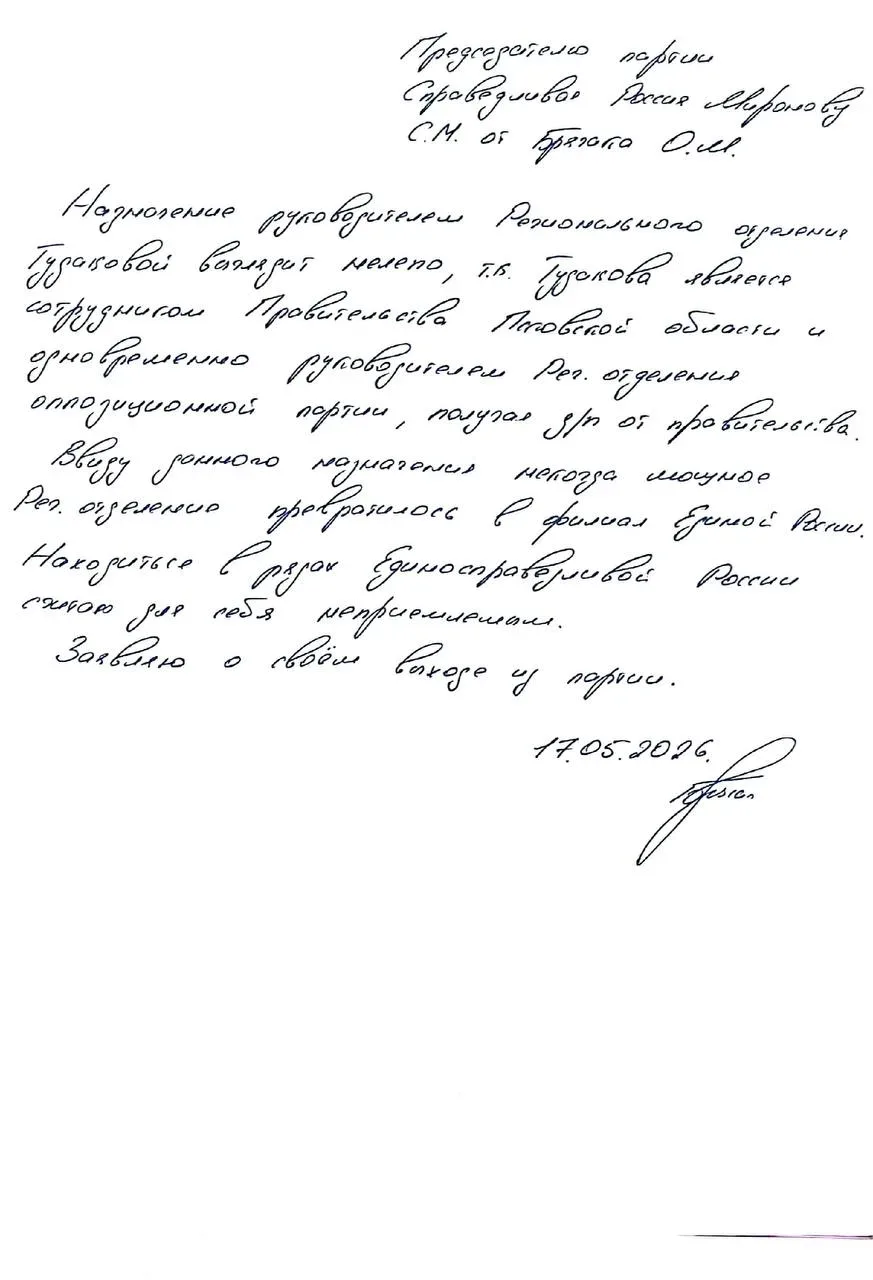 Председателю партии
Справедливая Россия Миронову
С.М. от Брячака О.М.
Назначение руководителем Регионального отделения
Тудаковой выглядит нелепо, т.к. Тудакова является
сотрудником Правительства Псковской области и
одновременно руководителем Рег. отделения
оппозиционной партии, получая з/п от правительства.
Ввиду данного назначения некогда мощное
Рег. отделение превратилось в филиал Единой России.
Находиться в рядах Единосправедливой России
считаю для себя неприемлемым.
Заявляю о своём выходе из партии.
17.05.2026.